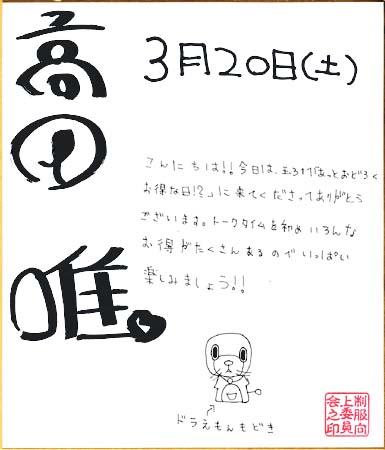 高田
唯。
3月20日(土)
こんにちは!!今日は、玉3打「あっとおどろく
お得な日!?」に来てくださってありがとう
ございます。トークタイムを初め いろんな
お得がたくさんあるので いっぱい
楽しみましょう!!
ドラえもんもどき
制服向
上委員
会之印